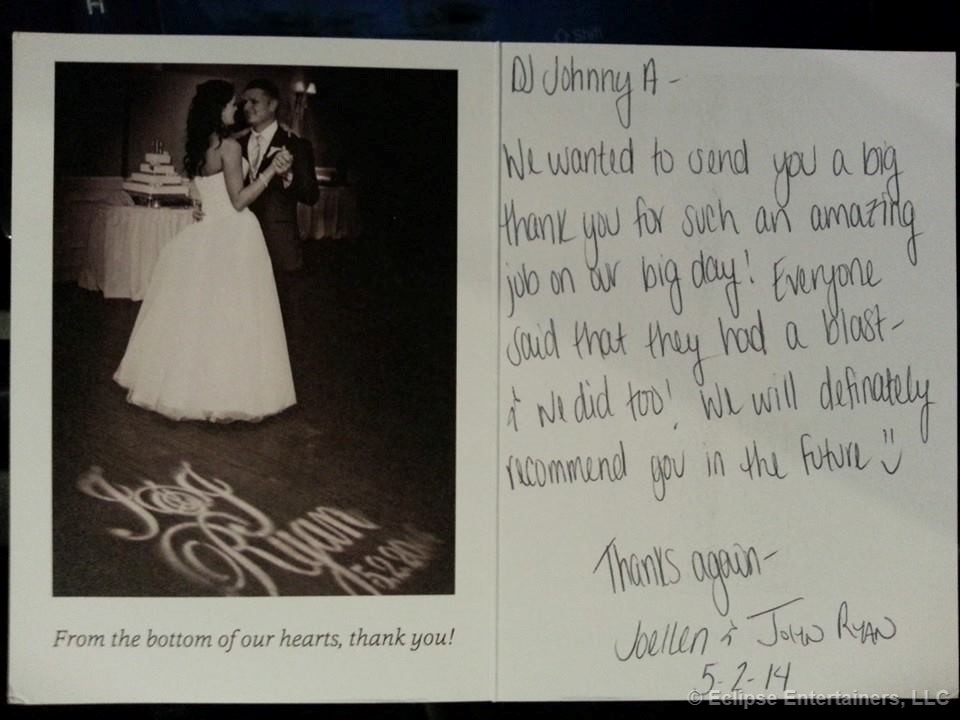 H
Shift
J & J
Ryan
5.2.2014
From the bottom of our hearts, thank you!
DJ Johnny A -
We wanted to send you a big
thank you for such an amazing
job on our big day! Everyone
said that they had a blast-
& we did too! We will definately
recommend you in the future
Thanks again-
Joellen & John Ryan
5-2-14
© Eclipse Entertainers, LLC